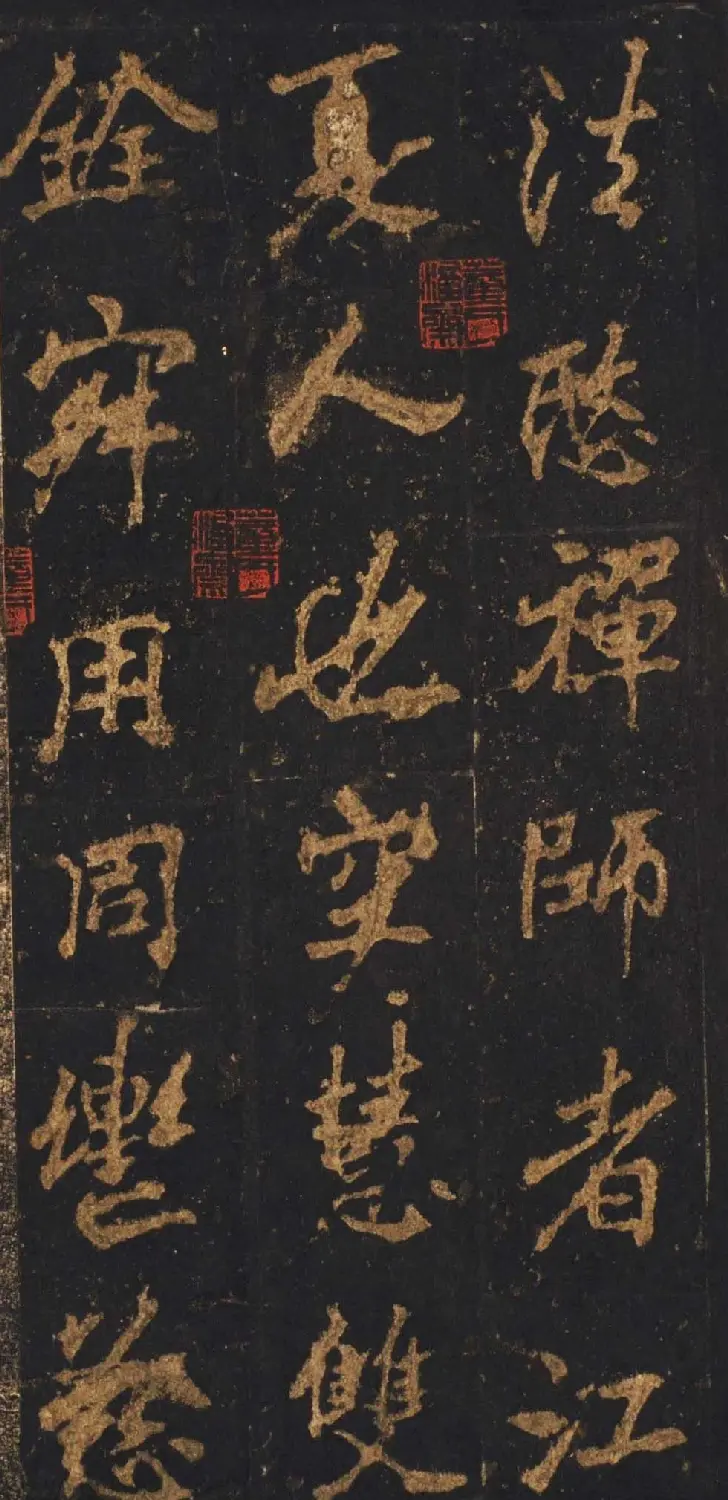 法愍禪師者江
夏人也空慧雙
銓寂用同轡慈